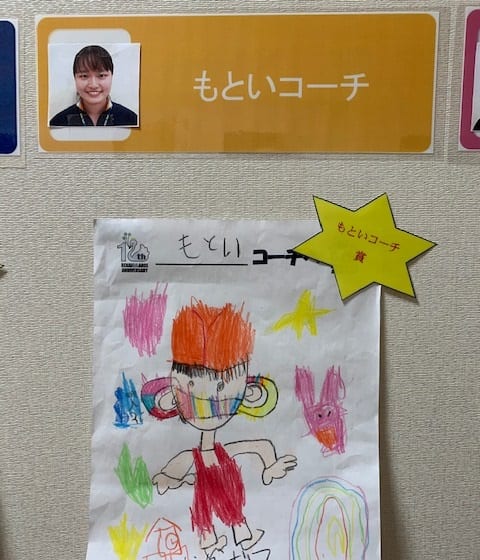 もといコーチ
もといコーチ
賞
12th
ANNIVERSARY
もとい コーチ